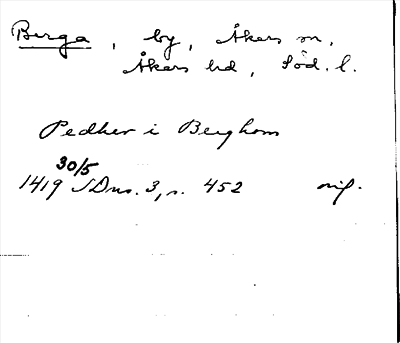 Berga, by, Åkers sn,
Åkers hd, Söd. l.
Pedher i Berghom
30/5
1419 SDns. 3, s. 452 orig.